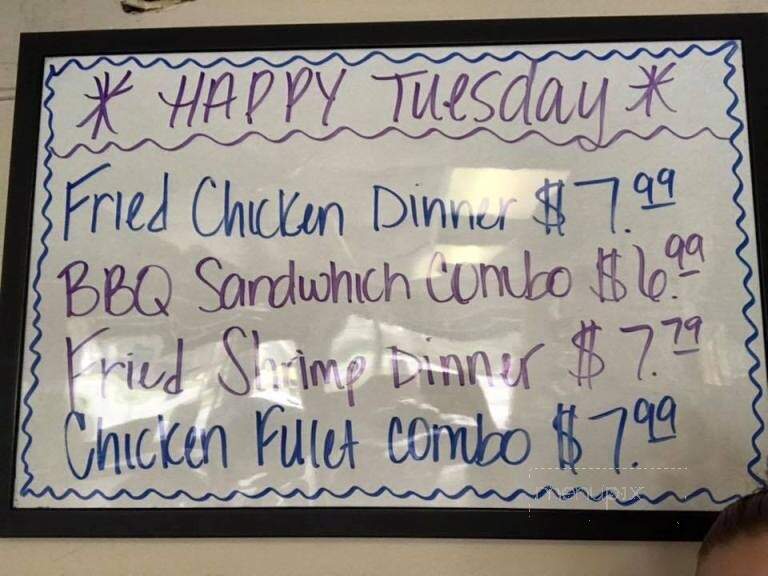 * HAPPY Tuesday *
Fried Chicken Dinner $7.99
BBQ Sandwhich Combo $6.99
Fried Shrimp Dinner $7.79
Chicken Fullet combo $7.99
menupix